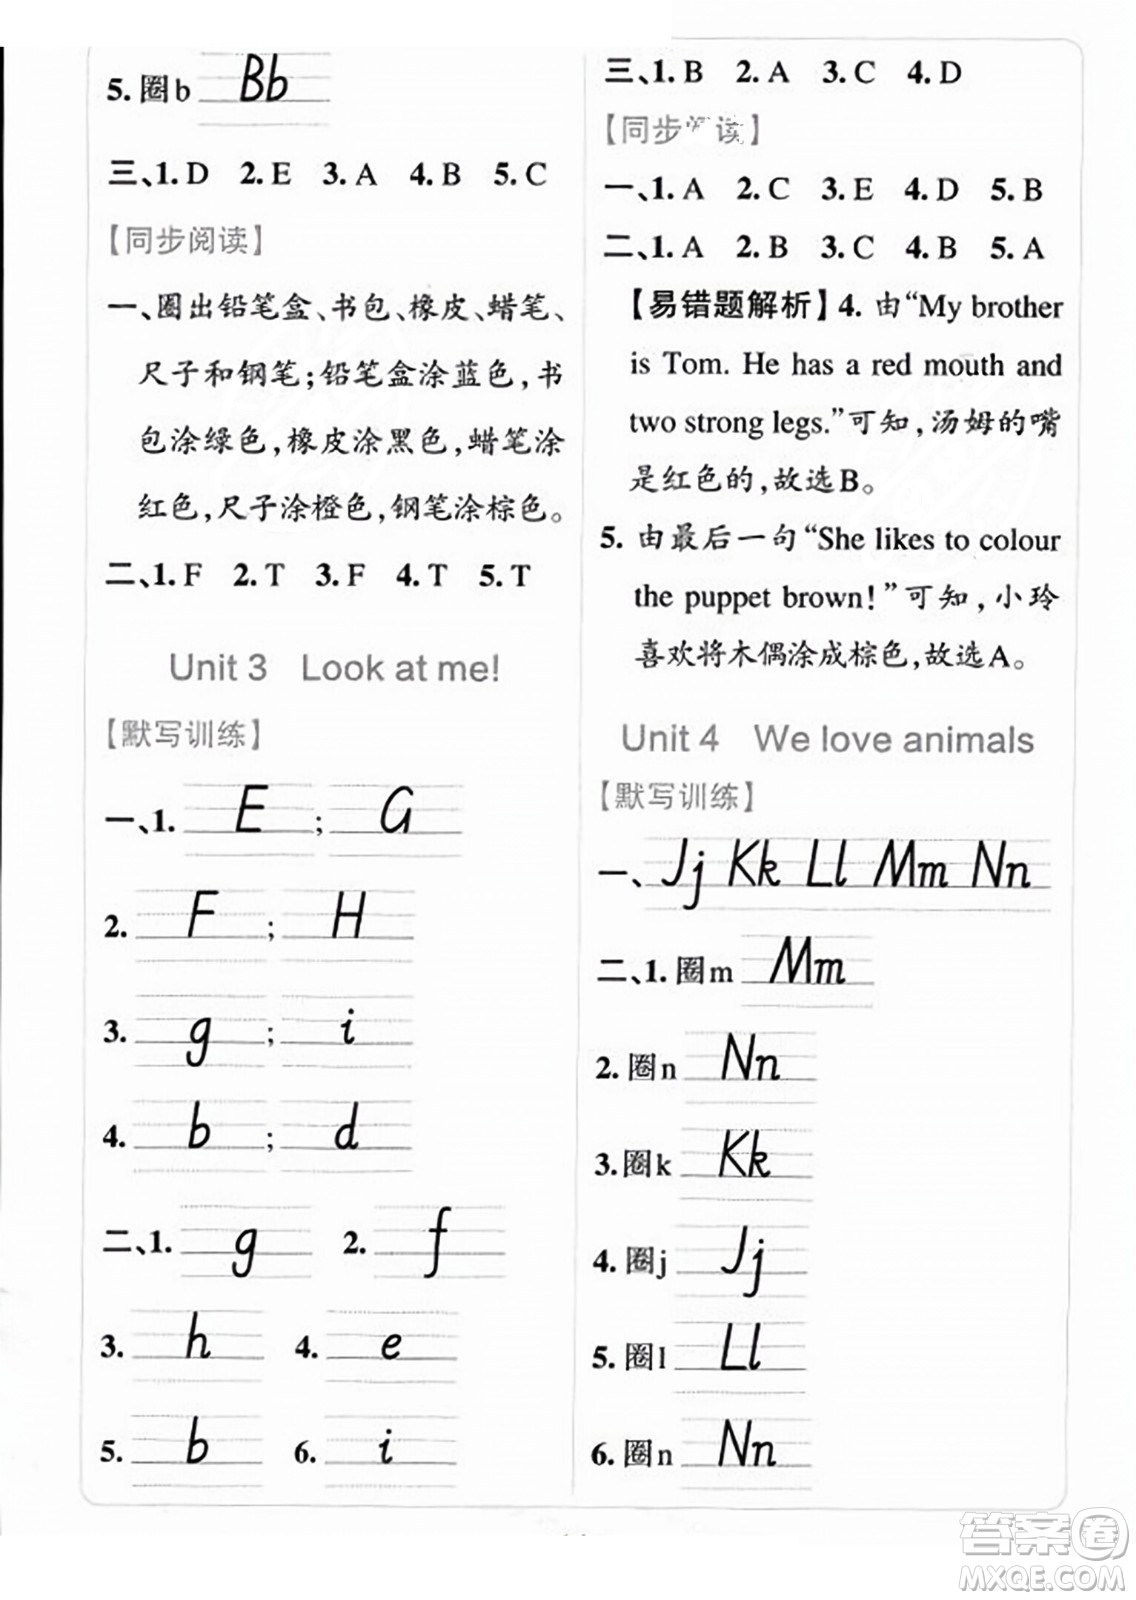 5. 圈b Bb
三、1. D 2. E 3. A 4. B 5. C
【同步阅读】
一、圈出铅笔盒、书包、橡皮、蜡笔、
尺子和钢笔；铅笔盒涂蓝色，书
包涂绿色，橡皮涂黑色，蜡笔涂
红色，尺子涂橙色，钢笔涂棕色。
二、1. F 2. T 3. F 4. T 5. T
Unit 3 Look at me!
【默写训练】
一、1. E ; G
2. F ; H
3. g ; i
4. b ; d
二、1. g 2. f
3. h 4. e
5. b 6. i
三、1. B 2. A 3. C 4. D
【同步阅读】
一、1. A 2. C 3. E 4. D 5. B
二、1. A 2. B 3. C 4. B 5. A
【易错题解析】4. 由“My brother
is Tom. He has a red mouth and
two strong legs.”可知，汤姆的嘴
是红色的，故选B。
5. 由最后一句“She likes to colour
the puppet brown!”可知，小玲
喜欢将木偶涂成棕色，故选A。
Unit 4 We love animals
【默写训练】
一、Jj Kk Ll Mm Nn
二、1. 圈m Mm
2. 圈n Nn
3. 圈k Kk
4. 圈j Jj
5. 圈l Ll
6. 圈n Nn
答案圈
MXQE.COM